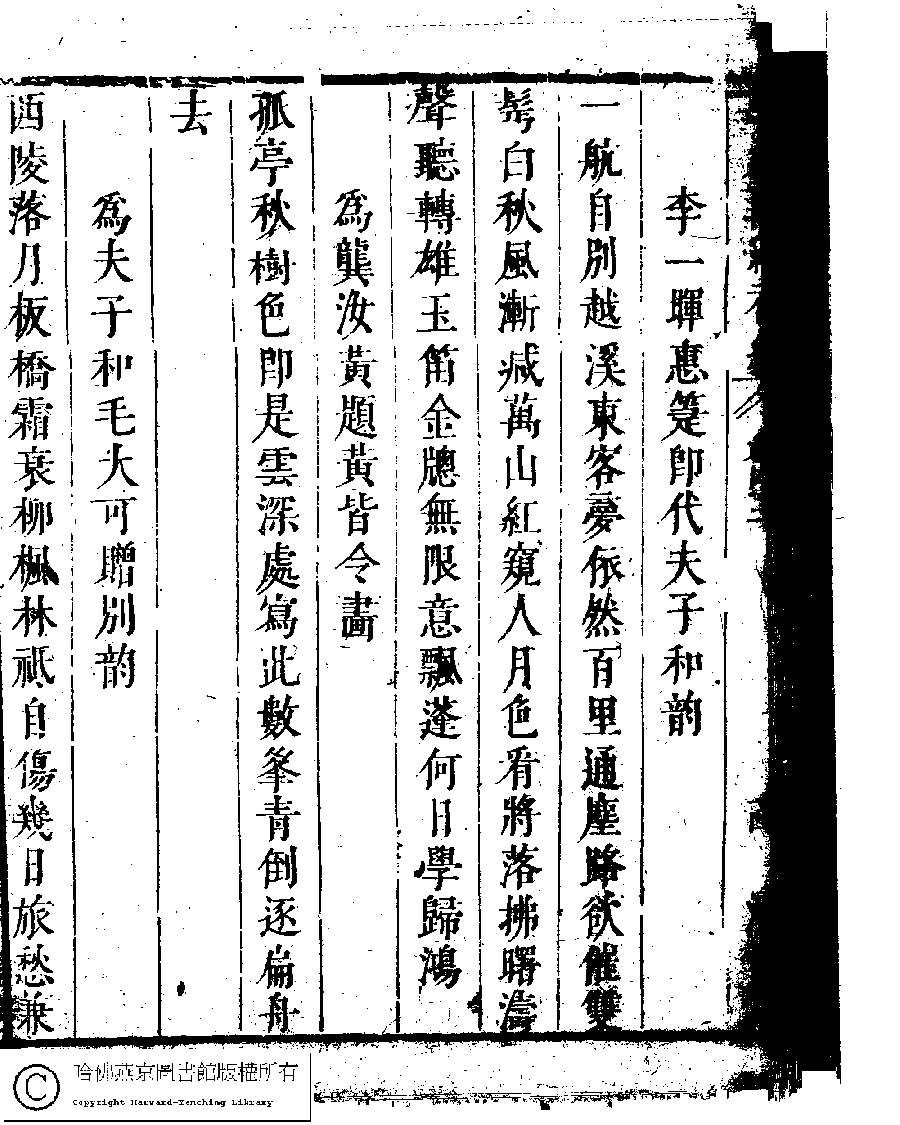 李一暉惠箑即代夫子和韵
一航自別越溪東客夢依然百里通塵路欲催雙
髩白秋風漸減萬山紅窺人月色看將落拂曙濤
聲聽轉雄玉笛金牕無限意飄蓬何日學歸鴻
爲龔汝黃題黃皆令畵
孤亭秋樹色即是雲深處寫此數峯青倒逐扁舟
去
爲夫子和毛大可贈別韵
西陵落月板橋霜衰柳楓林祇自傷幾日旅愁兼
哈佛燕京圖書館版權所有
Copyright Harvard-Yenching Library